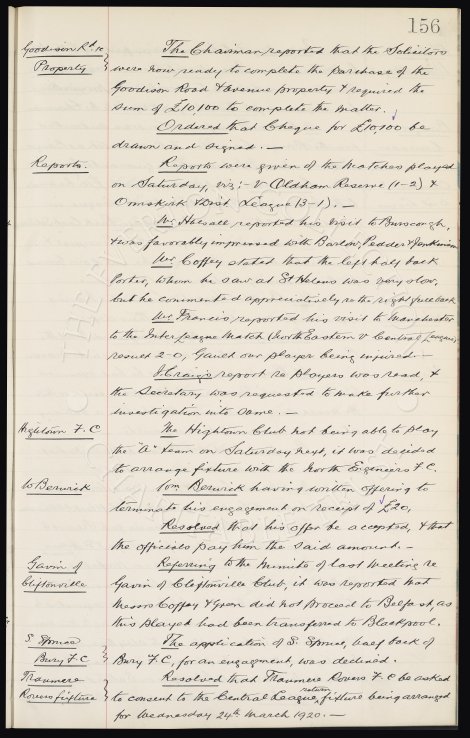 156
Goodison Rd. &c
Property
The Chairman reported that the Solicitors
were now ready to complete the purchase of the
Goodison Road & Avenue property & required the
sum of £10,100 to complete the matter.
Ordered that Cheque for £10,100 be
drawn and signed. —
Reports.
Reports were given of the matches played
on Saturday, viz;- v Oldham Reserve (1-2) &
Ormskirk & Dist League (3-1). —
Mr. Halsall reported his visit to Burscough,
& was favorably impressed with Barlow, Pedder & Jenkinson
Mr. Coffey stated that the left half back
Porter, whom he saw at St Helens was very slow,
but he commented appreciatively re the right full back
Mr. Francis reported his visit to Manchester
to the Inter League Match (North Eastern v Central League)
result 2-0, Gault our player being injured. —
J. Craig's report re players was read, &
the Secretary was requested to make further
investigation into same. —
Hightown F. C
The Hightown Club not being able to play
the "A" team on Saturday next, it was decided
to arrange fixture with the North Engineers F C.
W Berwick
Wm. Berwick having written offering to
terminate his engagement on receipt of £20,
Resolved that his offer be accepted, & that
the officials pay him the said amount. —
Gavin of
Cliftonville
Referring to the minute of last meeting re
Gavin of Cliftonville Club, it was reported that
Messrs Coffey & Green did not proceed to Belfast, as
this player had been transferred to Blackpool.
S. Spruce
Bury F C
The application of S. Spruce, half back of
Bury F.C, for an engagement, was declined.
Tranmere
Rovers fixture
Resolved that Tranmere Rovers F. C be asked
to consent to the Central League return fixture being arranged
for Wednesday 24th March 1920. —